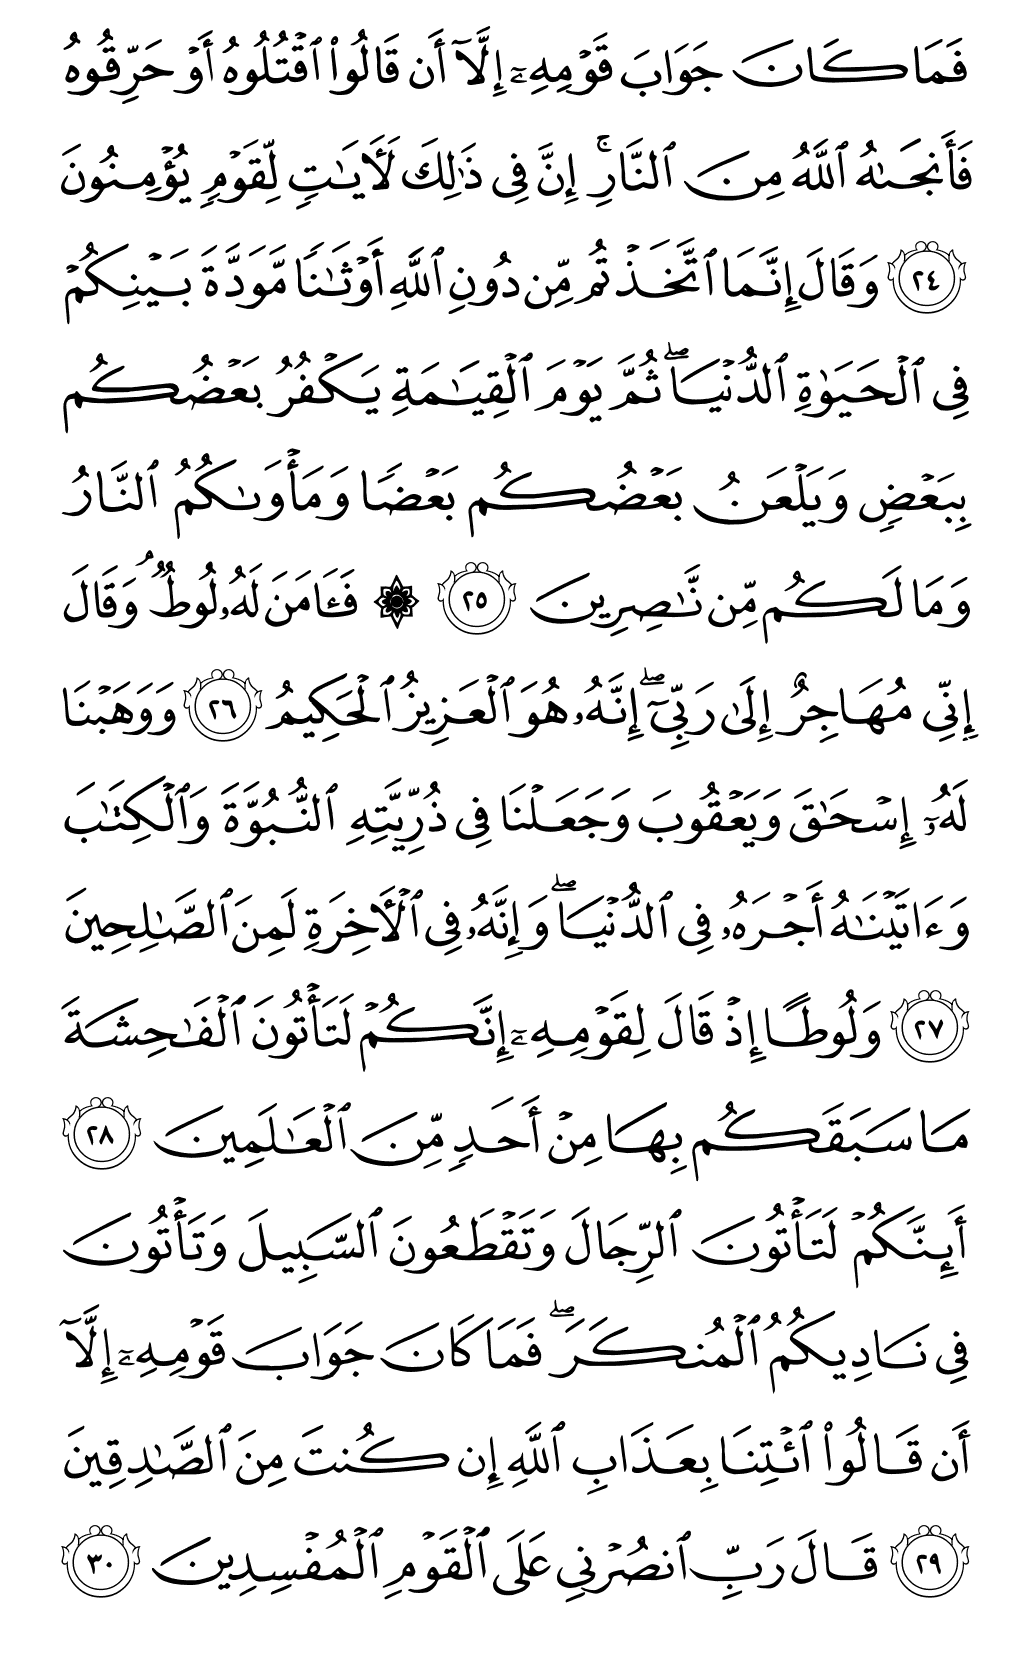 فَمَا كَانَ جَوَابَ قَوۡمِهِۦٓ إِلَّآ أَن قَالُواْ ٱقۡتُلُوهُ أَوۡ حَرِّقُوهُ
فَأَنجَىٰهُ ٱللَّهُ مِنَ ٱلنَّارِۚ إِنَّ فِي ذَٰلِكَ لَأٓيَٰتٖ لِّقَوۡمٖ يُؤۡمِنُونَ
٢٤ وَقَالَ إِنَّمَا ٱتَّخَذۡتُم مِّن دُونِ ٱللَّهِ أَوۡثَٰنٗا مَّوَدَّةَ بَيۡنِكُمۡ
فِي ٱلۡحَيَوٰةِ ٱلدُّنۡيَاۖ ثُمَّ يَوۡمَ ٱلۡقِيَٰمَةِ يَكۡفُرُ بَعۡضُكُم
بِبَعۡضٖ وَيَلۡعَنُ بَعۡضُكُم بَعۡضٗا وَمَأۡوَىٰكُمُ ٱلنَّارُ
وَمَا لَكُم مِّن نَّٰصِرِينَ ٢٥ ۞ فَـَٔامَنَ لَهُۥ لُوطٞۘ وَقَالَ
إِنِّي مُهَاجِرٌ إِلَىٰ رَبِّيٓۖ إِنَّهُۥ هُوَ ٱلۡعَزِيزُ ٱلۡحَكِيمُ ٢٦ وَوَهَبۡنَا
لَهُۥٓ إِسۡحَٰقَ وَيَعۡقُوبَ وَجَعَلۡنَا فِي ذُرِّيَّتِهِ ٱلنُّبُوَّةَ وَٱلۡكِتَٰبَ
وَءَاتَيۡنَٰهُ أَجۡرَهُۥ فِي ٱلدُّنۡيَاۖ وَإِنَّهُۥ فِي ٱلۡأٓخِرَةِ لَمِنَ ٱلصَّٰلِحِينَ
٢٧ وَلُوطًا إِذۡ قَالَ لِقَوۡمِهِۦٓ إِنَّكُمۡ لَتَأۡتُونَ ٱلۡفَٰحِشَةَ
مَا سَبَقَكُم بِهَا مِنۡ أَحَدٖ مِّنَ ٱلۡعَٰلَمِينَ ٢٨
أَئِنَّكُمۡ لَتَأۡتُونَ ٱلرِّجَالَ وَتَقۡطَعُونَ ٱلسَّبِيلَ وَتَأۡتُونَ
فِي نَادِيكُمُ ٱلۡمُنكَرَۖ فَمَا كَانَ جَوَابَ قَوۡمِهِۦٓ إِلَّآ
أَن قَالُواْ ٱئۡتِنَا بِعَذَابِ ٱللَّهِ إِن كُنتَ مِنَ ٱلصَّٰدِقِينَ
٢٩ قَالَ رَبِّ ٱنصُرۡنِي عَلَى ٱلۡقَوۡمِ ٱلۡمُفۡسِدِينَ ٣٠